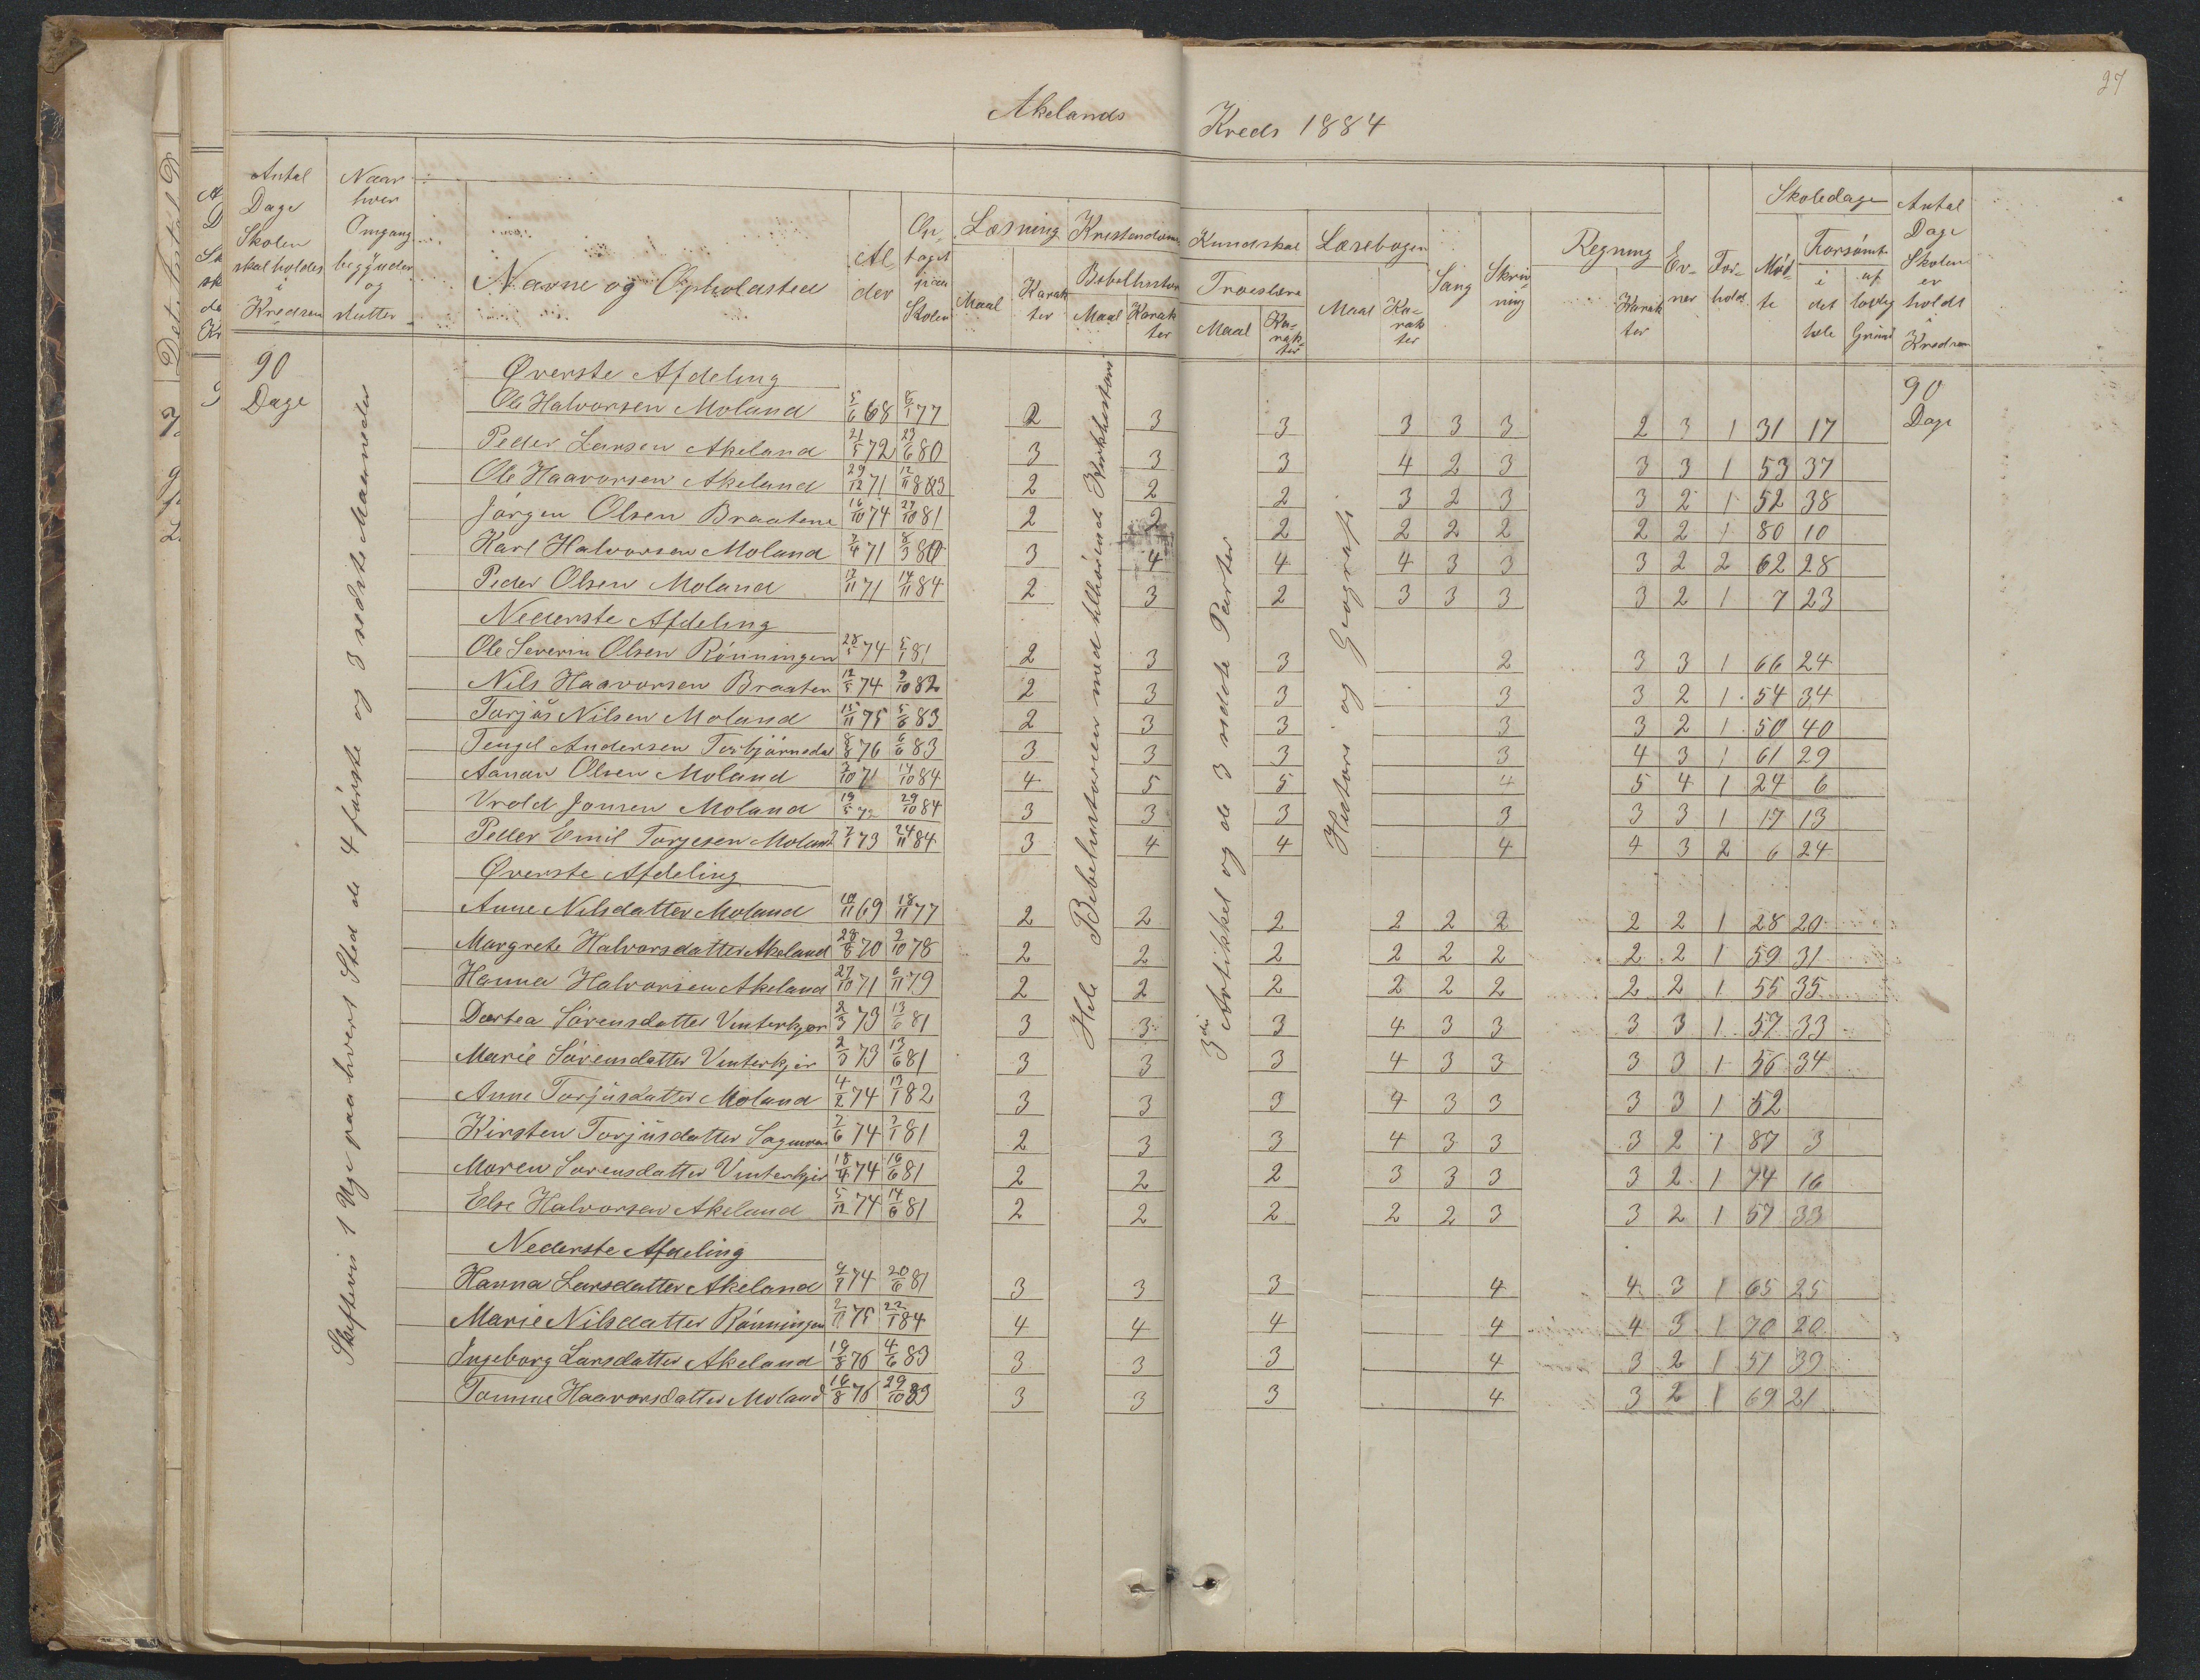 27
Akelands Kreds 1884
Antal Dage Skolen skal holdes i Kredsen
Naar hver Omgang begynder og slutter
Navne og Opholdsted
Alder
Optaget paa Skolen
Læsning
Maal
Karakter
Kristendoms Kundskab
Bibelhistorie
Maal
Karakter
Troeslære
Maal
Karakter
Læsebogen
Maal
Karakter
Sang
Skrivning
Regning
Karakter
Evner
Forhold
Skoledage
Mødte
Forsømte
i det hele
af lovlig Grund
Antal Dage Skolen er holdt i Kredsen
90 Dage
90 Dage
Skiftevis 1 Uge paa hvert Sted de 4 første og 3 sidste Maaneder
Hele Bibelhistorien med tilhørende Kirkhistorie
3die Artikkel og de 3 sidste Parter
Historie og Geografi
Øverste Afdeling
Ole Halvorsen Moland 5/6 68 5/1 77 2 3 3 3 3 3 2 3 1 31 17
Peder Larsen Akeland 21/5 72 23/6 80 3 3 3 4 2 3 3 3 1 53 37
Ole Haavorsen Akeland 29/12 71 12/11 83 2 2 2 3 2 3 3 2 1 52 38
Jörgen Olsen Braatene 16/10 74 27/10 81 2 2 2 2 2 2 2 2 1 80 10
Karl Halvorsen Moland 7/4 71 8/3 80 3 4 4 4 3 3 3 2 2 62 28
Peder Olsen Moland 17/11 71 14/11 84 2 3 2 3 3 3 3 2 1 7 23
Nederste Afdeling
Ole Severin Olsen Rönningen 28/1 74 5/1 81 2 3 3 2 3 3 1 66 24
Nils Haavorsen Braaten 12/5 74 9/10 82 2 3 3 3 3 2 1 54 34
Torjus Nilsen Moland 15/11 75 5/6 83 2 3 3 3 3 2 1 50 40
Tengel Andersen Torbjörnsdal 8/8 76 6/6 83 3 3 3 3 4 3 1 61 29
Aanon Olsen Moland 7/10 71 14/10 84 4 5 5 4 5 4 1 24 6
Vrold Jonsen Moland 19/5 72 29/10 84 3 3 3 3 3 3 1 17 13
Peder Emil Torjesen Moland 7/1 73 24/11 84 3 4 4 4 4 3 2 6 24
Øverste Afdeling
Anne Nilsdatter Moland 10/11 69 18/11 77 2 2 2 2 2 2 2 2 1 28 20
Margrete Halvorsdatter Akeland 28/8 70 9/10 78 2 2 2 2 2 2 2 2 1 59 31
Hanna Halvorsen Akeland 27/10 71 6/11 79 2 2 2 2 2 2 2 2 1 55 35
Dortea Sörensdatter Vinterkjær 2/3 73 13/6 81 3 3 3 4 3 3 3 3 1 57 33
Marie Sörensdatter Vinterkjer 2/3 73 13/6 81 3 3 3 4 3 3 3 3 1 56 34
Anne Torjusdatter Moland 4/2 74 17/1 82 3 3 3 4 3 3 3 3 1 52
Kirsten Torjusdatter 7/6 74 7/1 81 2 3 3 4 3 3 3 2 1 87 3
Maren Sorensdatter Vinterkjer 18/4 74 16/6 81 2 2 2 3 3 3 3 2 1 74 16
Else Halvorsen Akeland 5/12 74 14/6 81 2 2 2 2 2 3 3 2 1 57 33
Nederste Afdeling
Hanna Larsdatter Akeland 4/7 74 20/6 81 3 3 3 4 4 3 1 65 25
Marie Nilsdatter Rönningen 2/11 75 22/1 84 4 4 4 4 4 3 1 70 20
Ingeborg Larsdatter Akeland 19/8 76 4/6 83 3 3 3 4 3 2 1 51 39
Tomine Haavorsdatter Moland 16/8 76 29/10 83 3 3 3 4 3 2 1 69 21